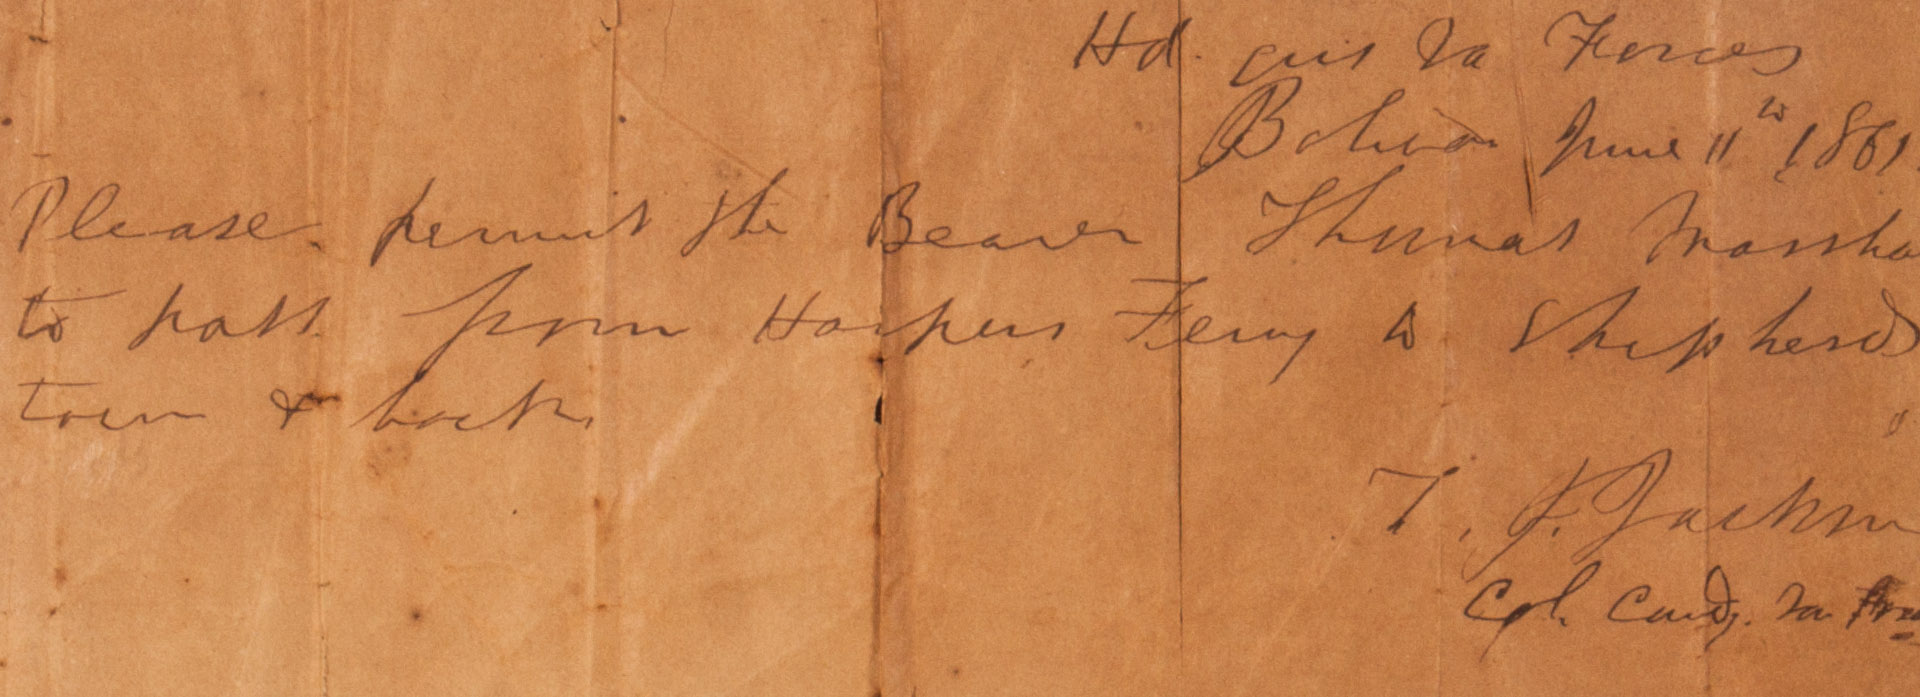 Hd. qrs Va Forces
Bolivar June 11th 1861.
Please permit the Bearer Thomas Marsha
to pass from Harpers Ferry to Shepherds
town & back
"
T. J. Jackson
Col. Comdg. Va